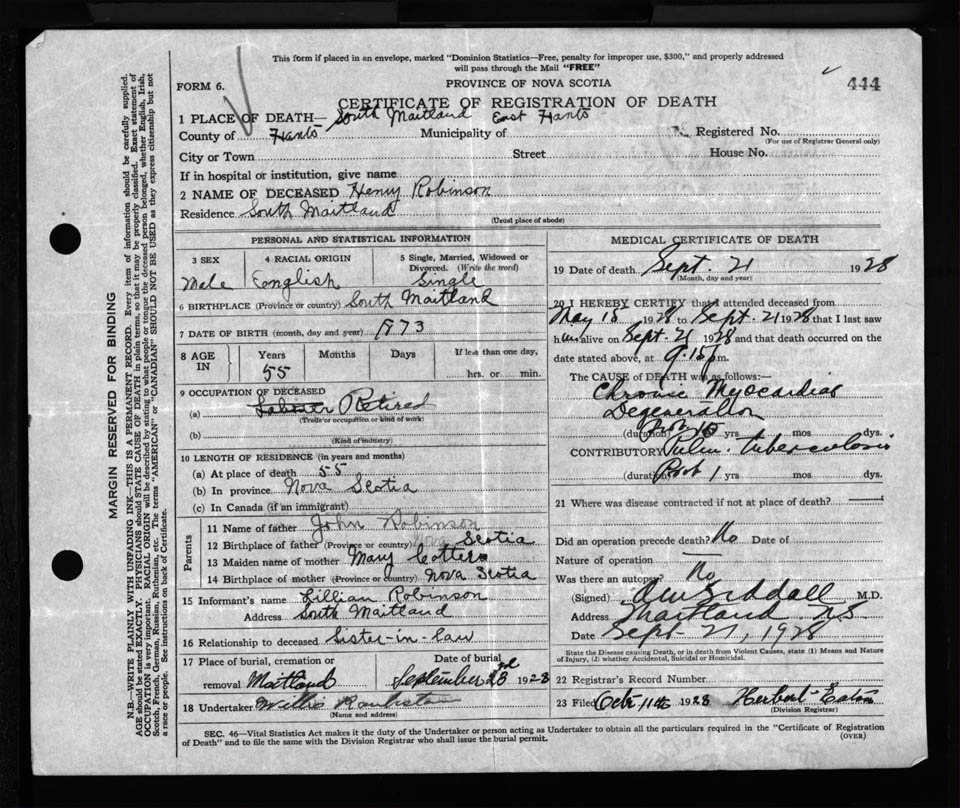 This form if placed in an envelope, marked "Dominion Statistics—Free, penalty for improper use, $300," and properly addressed
will pass through the Mail "FREE"
FORM 6.
PROVINCE OF NOVA SCOTIA
444
CERTIFICATE OF REGISTRATION OF DEATH
1 PLACE OF DEATH— South Maitland East Hants
County of Hants Municipality of Registered No.
(For use of Registrar General only)
City or Town Street House No.
If in hospital or institution, give name
2 NAME OF DECEASED Henry Robinson
Residence South Maitland
(Usual place of abode)
PERSONAL AND STATISTICAL INFORMATION
3 SEX 4 RACIAL ORIGIN 5 Single, Married, Widowed or
Divorced. (Write the word)
Male English Single
6 BIRTHPLACE (Province or country) South Maitland
7 DATE OF BIRTH (month, day and year) 1873
8 AGE IN Years Months Days If less than one day,
55 hrs. or min.
9 OCCUPATION OF DECEASED
(a) Laborer Retired
(Trade or occupation or kind of work)
(b)
(Kind of industry)
10 LENGTH OF RESIDENCE (in years and months)
(a) At place of death 55
(b) In province Nova Scotia
(c) In Canada (if an immigrant)
Parents
11 Name of father John Robinson
12 Birthplace of father (Province or country) Nova Scotia
13 Maiden name of mother Mary Cotters
14 Birthplace of mother (Province or country) Nova Scotia
15 Informant's name Lillian Robinson
Address South Maitland
16 Relationship to deceased Sister-in-law
17 Place of burial, cremation or Date of burial
removal Maitland September 23rd 1928
18 Undertaker Willis
(Name and address)
MEDICAL CERTIFICATE OF DEATH
19 Date of death Sept. 21 1928
(Month, day and year)
20 I HEREBY CERTIFY that I attended deceased from
May 15 1928 to Sept. 21 1928 that I last saw
him alive on Sept. 21 1928 and that death occurred on the
date stated above, at 9.15 p.m.
The CAUSE of DEATH was as follows:—
Chronic Myocardial
Degeneration
(duration) Prob 15 yrs mos dys.
CONTRIBUTORY Pulm. tuberculosis
(duration) Prob 1 yrs mos dys.
21 Where was disease contracted if not at place of death?
Did an operation precede death? No Date of
Nature of operation —
Was there an autopsy? No
(Signed) M.D.
Address Maitland NS
Date Sept 21, 1928
State the Disease causing Death, or in death from Violent Causes, state (1) Means and Nature
of Injury, (2) whether Accidental, Suicidal or Homicidal.
22 Registrar's Record Number
23 Filed Oct. 11th 1928 Herbert Eaton
(Division Registrar)
SEC. 46—Vital Statistics Act makes it the duty of the Undertaker or person acting as Undertaker to obtain all the particulars required in the "Certificate of Registration
of Death" and to file the same with the Division Registrar who shall issue the burial permit.
(OVER)
MARGIN RESERVED FOR BINDING
N.B.—WRITE PLAINLY WITH UNFADING INK—THIS IS A PERMANENT RECORD. Every item of information should be carefully supplied.
AGE should be stated EXACTLY. PHYSICIANS should STATE CAUSE OF DEATH in plain terms, so that it may be properly classified. Exact statement of
OCCUPATION is very important. RACIAL ORIGIN will be described by stating to what people or tongue the deceased person belonged, whether English, Irish,
Scotch, French, German, Russian, Ruthenian, etc. The terms "AMERICAN" or "CANADIAN" SHOULD NOT BE USED as they express citizenship but not
a race or people. See instructions on back of Certificate.